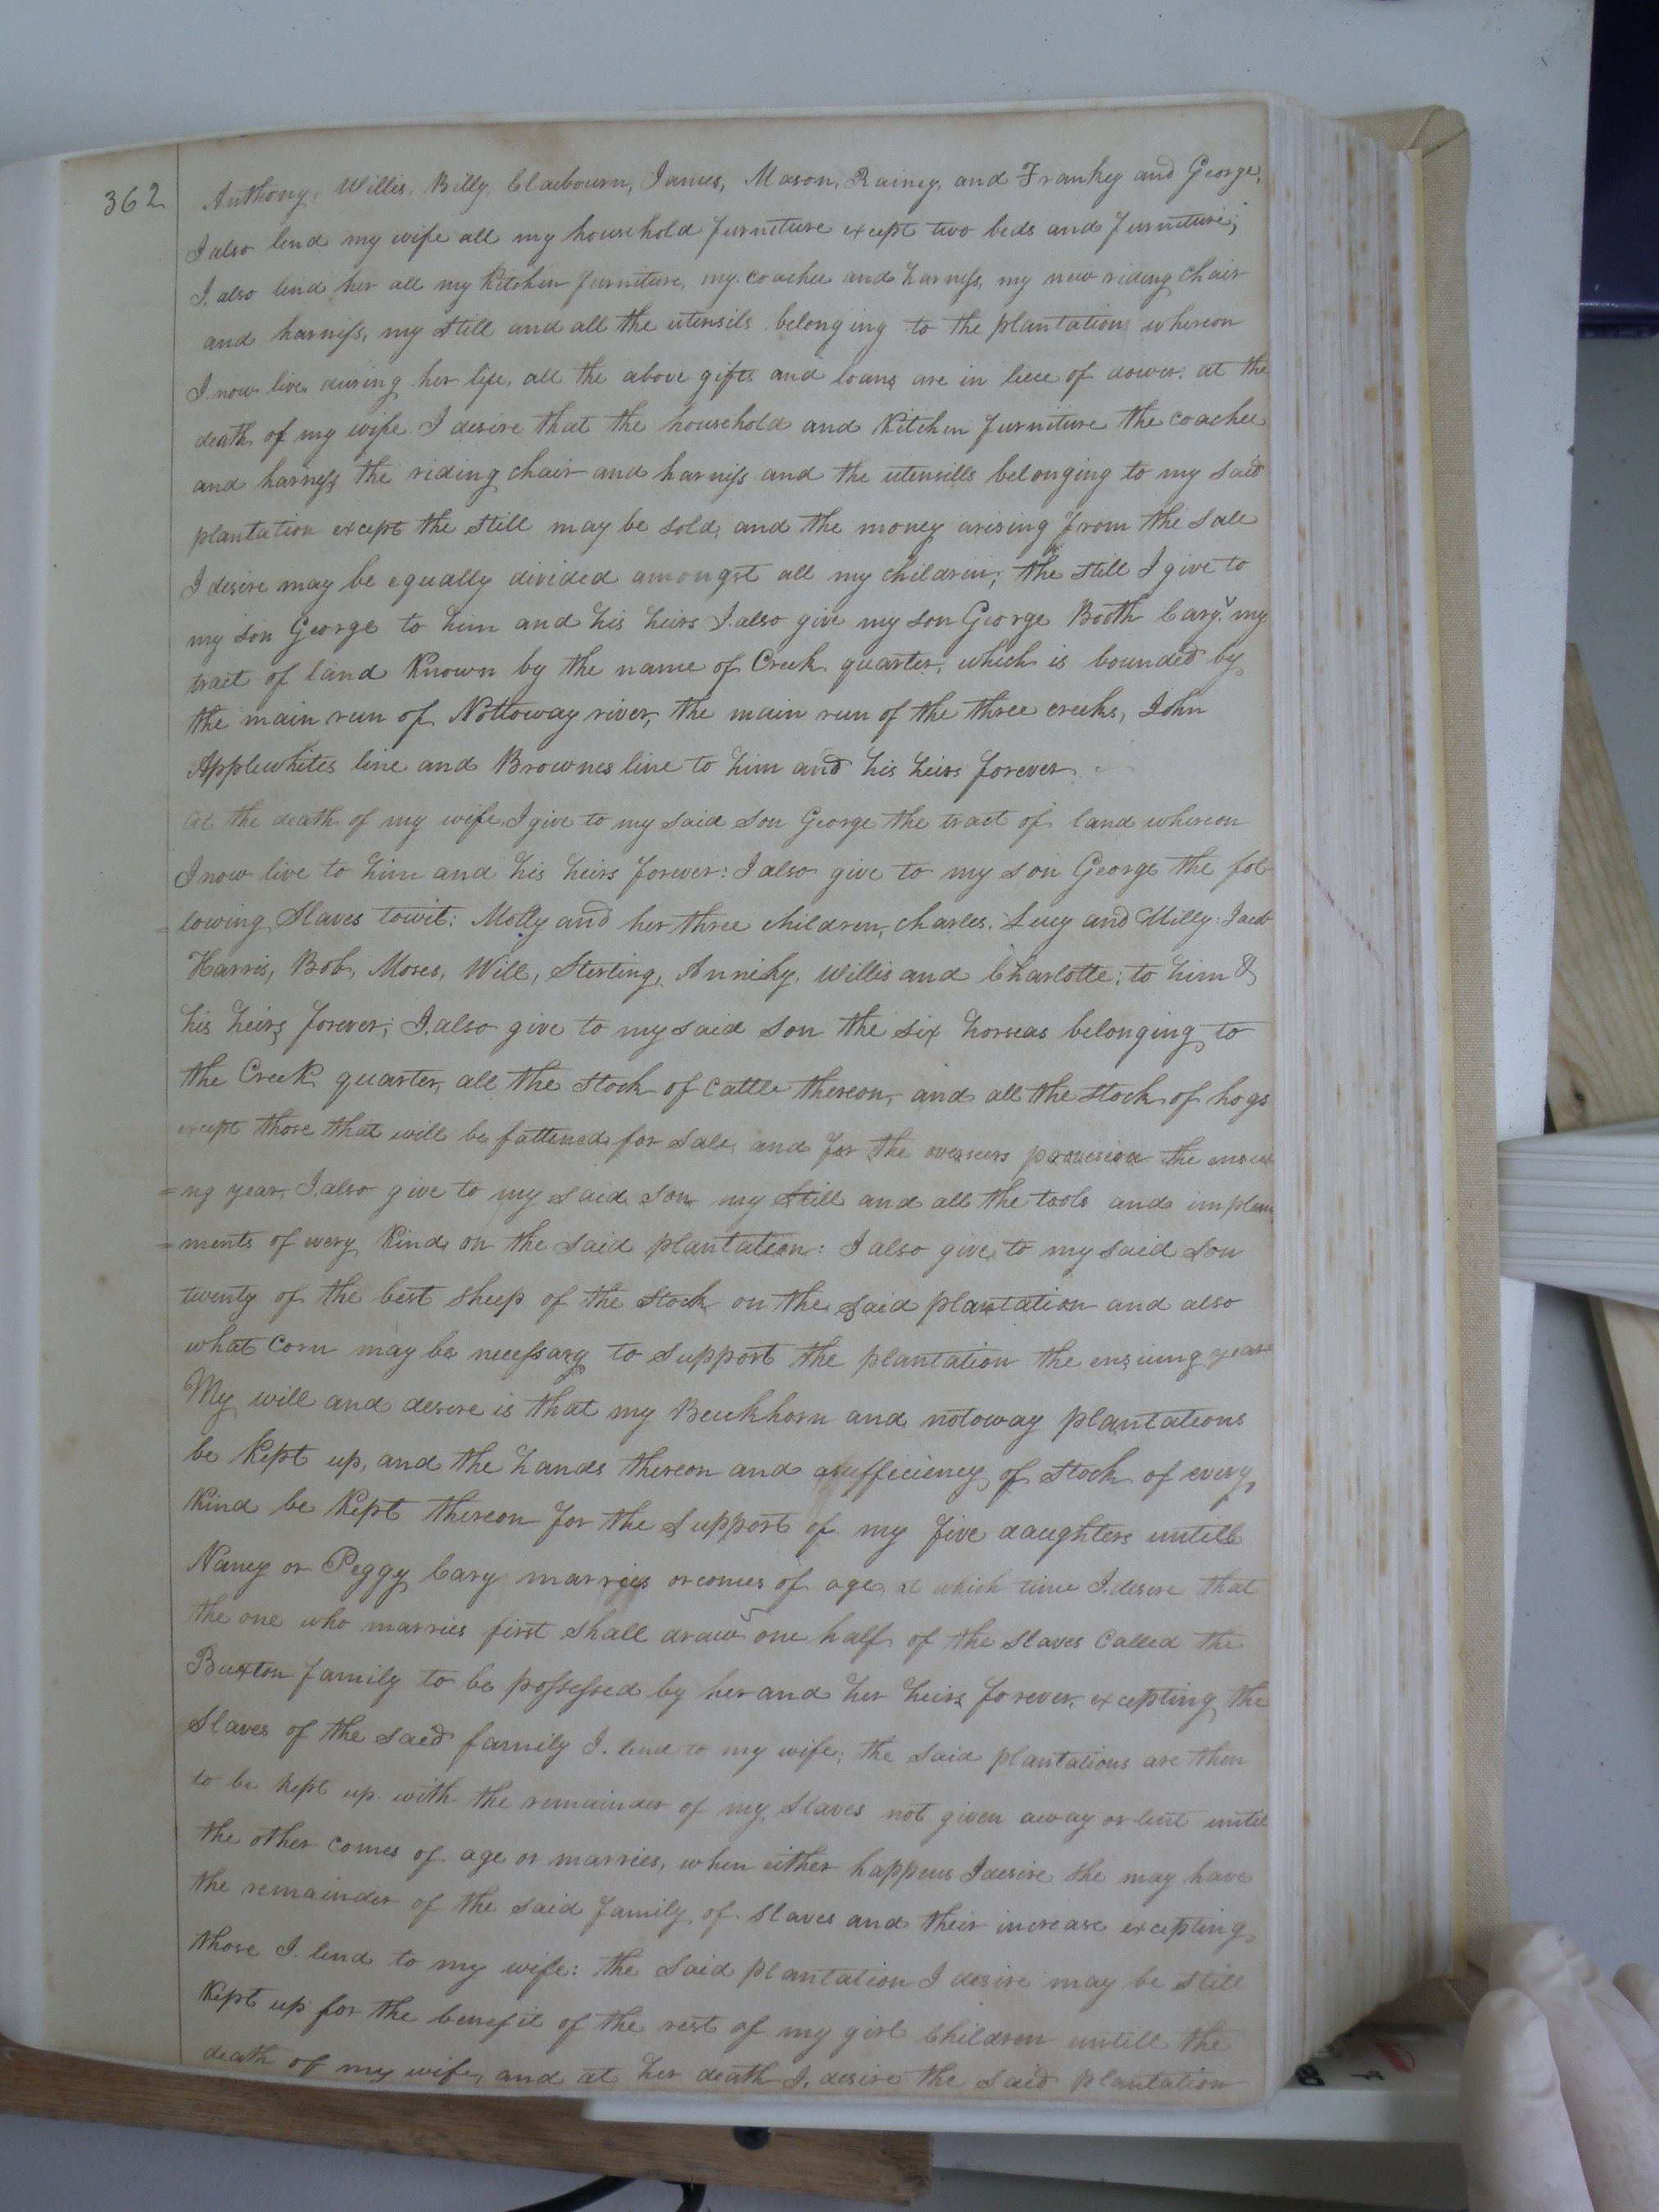 362
Anthony, Willis, Billy, Claebourn, James, Mason, Rainey, and Frankey and George,
I also lend my wife all my household furniture except two beds and furniture;
I also lend her all my Kitchen furniture, my coachee and harness, my new riding chair
and harness, my still and all the utensils belonging to the plantation whereon
I now live, during her life, all the above gifts and loans are in lieu of dower: at the
death of my wife I desire that the household and Kitchen furniture the coachee
and harness the riding chair and harness and the utensills belonging to my said
plantation except the still may be sold, and the money arising from the sale
I desire may be equally divided amongst all my children; the still I give to
my son George to him and his heirs I also give my son George Booth Cary my
tract of land Known by the name of Creek quarter, which is bounded by
the main run of Nottoway river, the main run of the three creeks, John
Applewhites line and Brownes line to him and his heirs forever
at the death of my wife, I give to my said son George the tract of land whereon
I now live to him and his heirs forever: I also give to my son George the fol-
=lowing Slaves towit: Molly and her three children, Charles, Lucy and Milly: Jacob
Harris, Bob, Moses, Will, Sterling, Anniky, Willis and Charlotte; to him &
his heirs forever; I also give to my said son the six horseas belonging to
the Creek quarter, all the stock of cattle thereon, and all the stock of hogs
except those that will be fattened for sale, and for the overseers provision the ensui
=ng year, I also give to my said son my still and all the tools and implem
=ments of every Kind on the said plantation: I also give to my said son
twenty of the best sheep of the stock on the said plantation and also
what corn may be necessary to support the plantation the ensiung year
My will and desire is that my Buckhorn and notoway plantations
be Kept up, and the hands thereon and asufficiency of stock of every
Kind be Kept thereon for the support of my five daughters untill
Nancy or Peggy Cary marries or comes of age at which time I desire that
the one who marries first shall draw one half of the slaves called the
Buxton family to be possessed by her and her heirs forever, excepting the
Slaves of the said family I lend to my wife; the said plantations are then
to be kept up with the remainder of my slaves not given away or lent until
the other comes of age or marries, when either happens I desire she may have
the remainder of the said family of slaves and their increase excepting
those I lend to my wife: the said plantation I desire may be still
Kept up for the benefit of the rest of my girl children untill the
death of my wife, and at her death I desire the said plantation